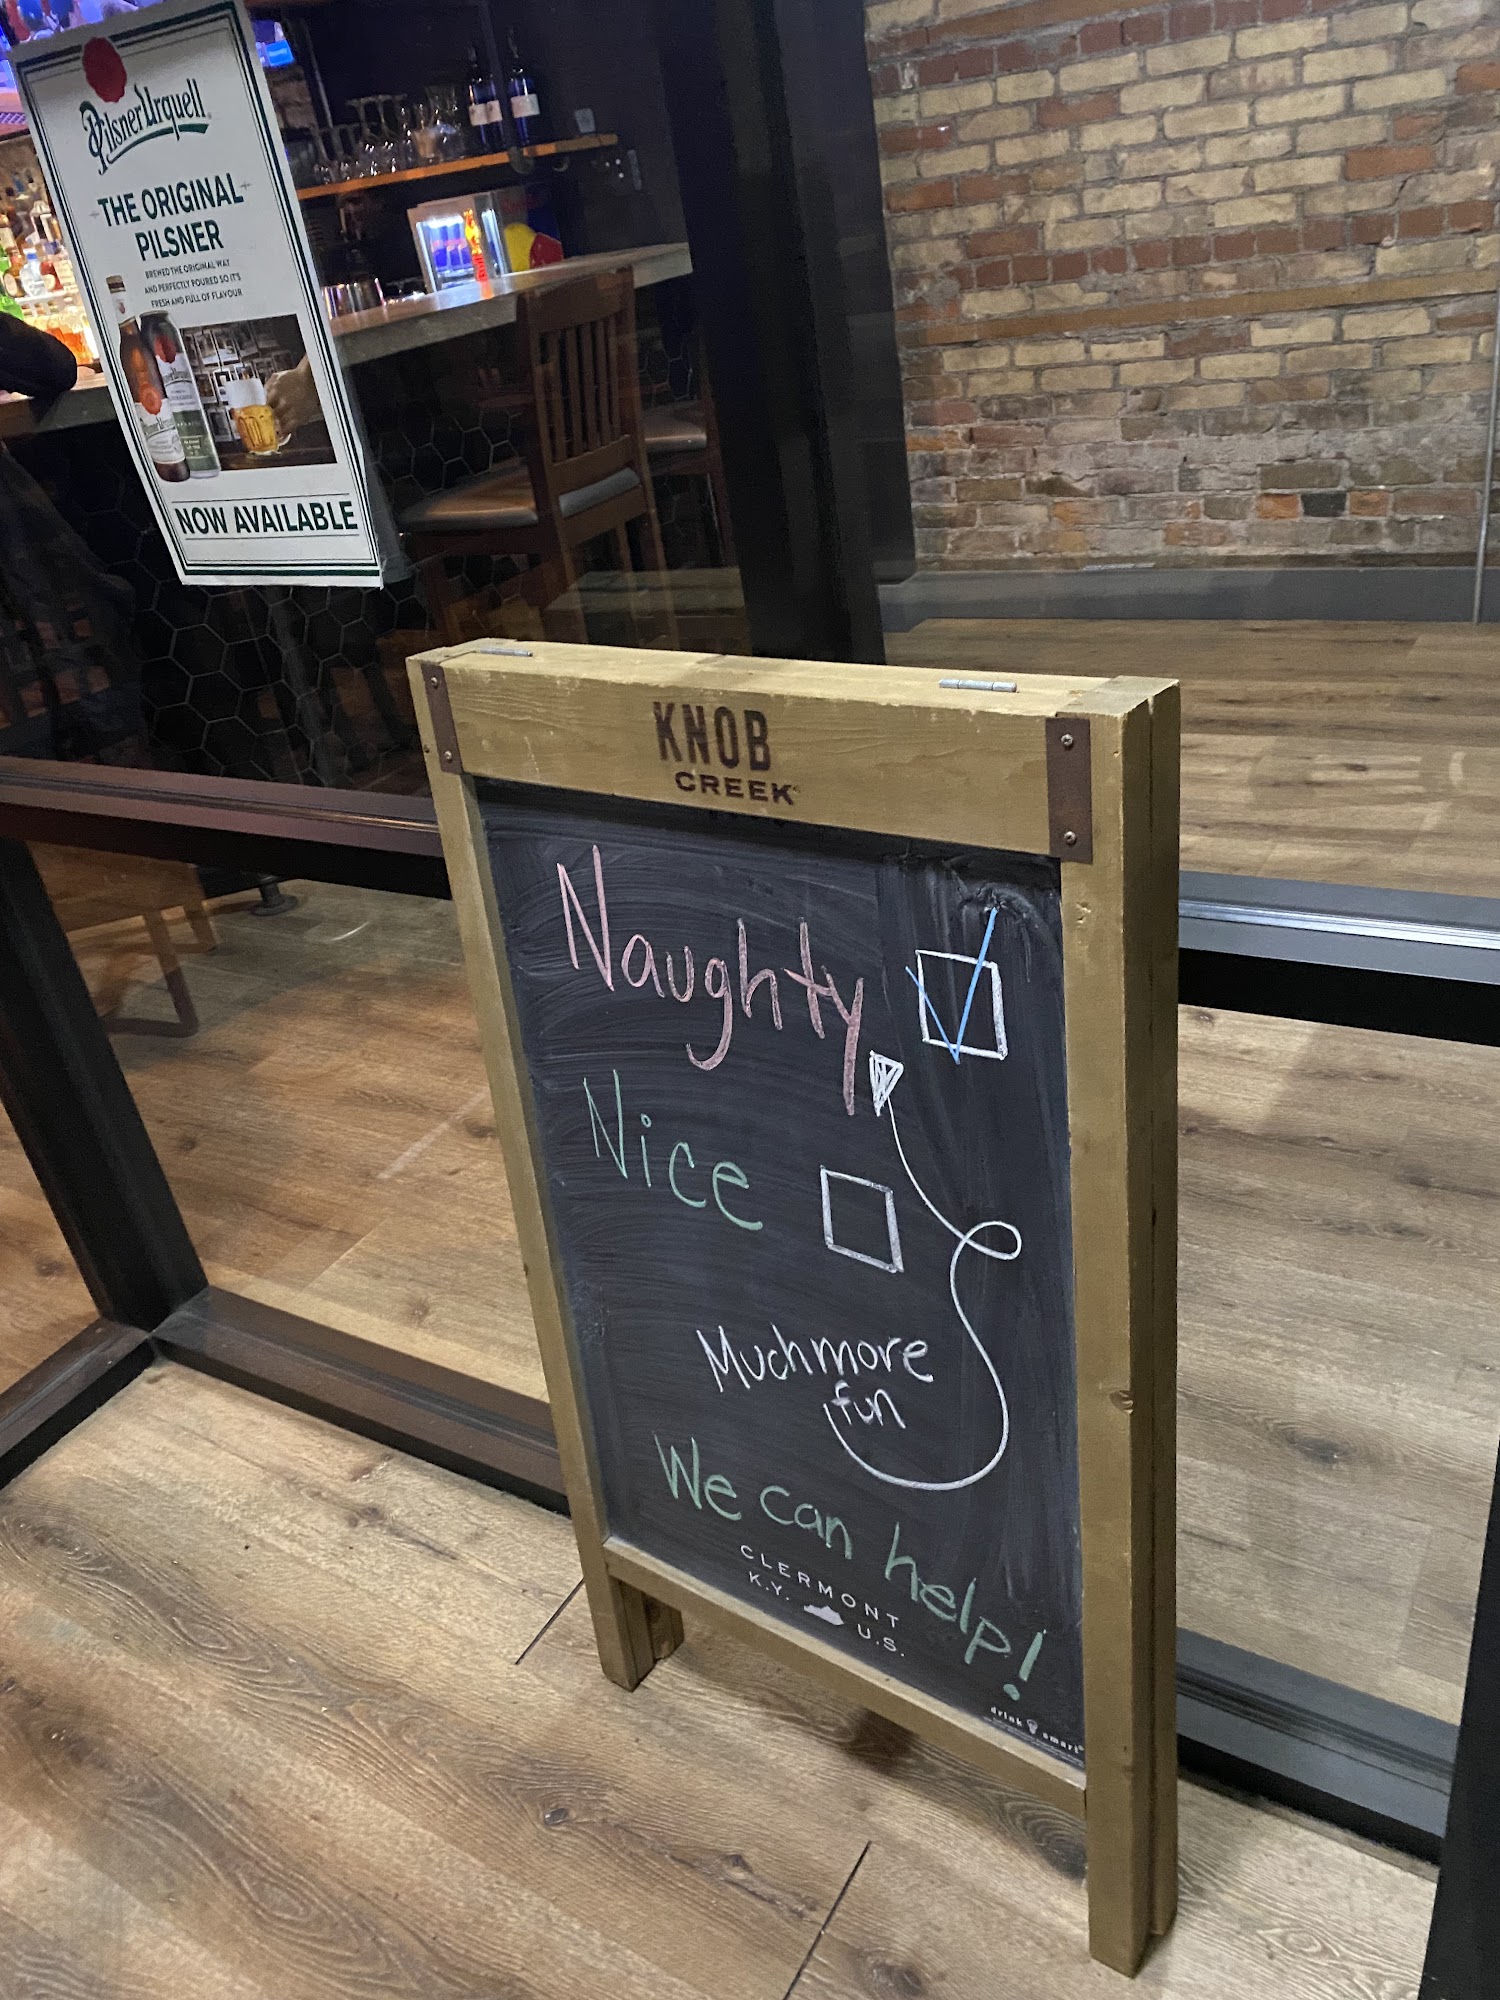 Pilsner Urquell
THE ORIGINAL
PILSNER
BREWED THE ORIGINAL WAY
AND PERFECTLY POURED SO IT'S
FRESH AND FULL OF FLAVOUR
NOW AVAILABLE
KNOB
CREEK
Naughty
Nice
Much more
fun
We can help!
CLERMONT
K.Y. U.S.
drink smart